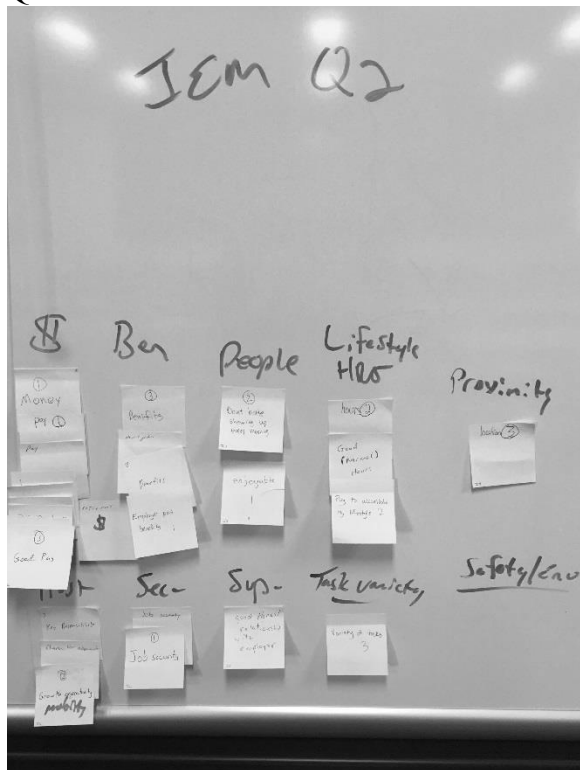 IEM Q2
$
Ben
People
Lifestyle
HRS
Proximity
①
Money
pay ①
Pay
①
Good Pay
$
③
Benefits
Benefits
Employer paid
benefits
②
Don't hate
showing up
every morning
enjoyable
!
hours ②
Good
(Normal)
Hours
Pay to accomplish
my lifestyle 2
location ③
Sec-
Sup-
Task variety
Safety/Env
②
Growth opportunity
mobility
Job security
①
Job security
good honest
relationship
with
employer
Variety of tasks
3